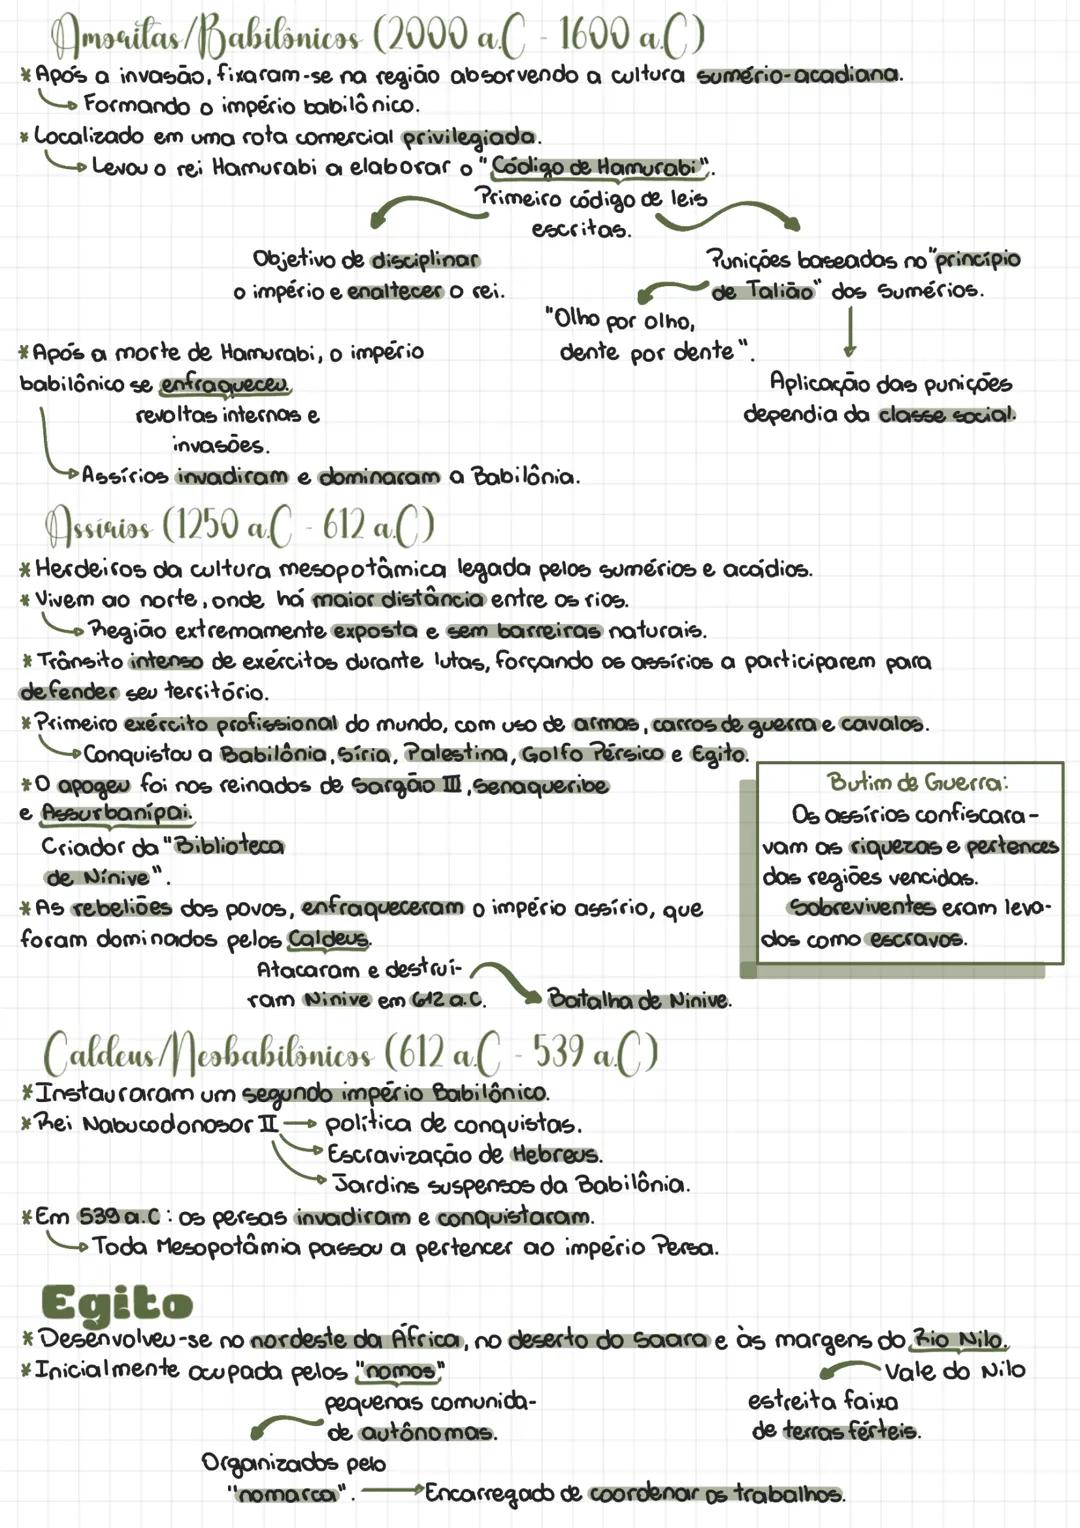 Amoritas/Babilônicos (2000 a.C - 1600 a.C)
* Após a invasão, fixaram-se na região absorvendo a cultura sumério-acadiana.
Formando o império babilônico.
* Localizado em uma rota comercial privilegiada.
Levou o rei Hamurabi a elaborar o "Código de Hamurabi".
Primeiro código de leis
escritas.
Objetivo de disciplinar
o império e enaltecer o rei.
Punições baseadas no "princípio
de Talião" dos Sumérios.
"Olho por olho,
dente por dente".
Aplicação das punições
dependia da classe social.
* Após a morte de Hamurabi, o império
babilônico se enfraqueceu.
revoltas internas e
invasões.
Assírios invadiram e dominaram a Babilônia.
Assírios (1250 a.C - 612 a.C)
* Herdeiros da cultura mesopotâmica legada pelos sumérios e acádios.
* Vivem ao norte, onde há maior distância entre os rios.
Região extremamente exposta e sem barreiras naturais.
* Trânsito intenso de exércitos durante lutas, forçando os assírios a participarem para
defender seu território.
* Primeiro exército profissional do mundo, com uso de armas, carros de guerra e cavalos.
Conquistou a Babilônia, Síria, Palestina, Golfo Pérsico e Egito.
* O apogeu foi nos reinados de Sargão III, Senaqueribe
e Assurbanípai.
Criador da "Biblioteca
de Nínive".
Butim de Guerra:
Os assírios confiscara-
vam as riquezas e pertences
das regiões vencidas.
Sobreviventes eram leva-
dos como escravos.
* As rebeliões dos povos, enfraqueceram o império assírio, que
foram dominados pelos Caldeus.
Atacaram e destruí-
ram Ninive em 612 a.C.
Batalha de Ninive.
Caldeus/Neobabilônicos (612 a.C - 539 a.C)
* Instauraram um segundo império Babilônico.
* Rei Nabucodonosor II
política de conquistas.
Escravização de Hebreus.
Jardins suspensos da Babilônia.
* Em 539 a.C : os persas invadiram e conquistaram.
Toda Mesopotâmia passou a pertencer ao império Persa.
Egito
* Desenvolveu-se no nordeste da África, no deserto do Saara e às margens do Rio Nilo.
* Inicialmente ocupada pelos "nomos"
Vale do Nilo
pequenas comunida-
de autônomas.
estreita faixa
de terras férteis.
Organizados pelo
"nomarca".
Encarregado de coordenar os trabalhos.